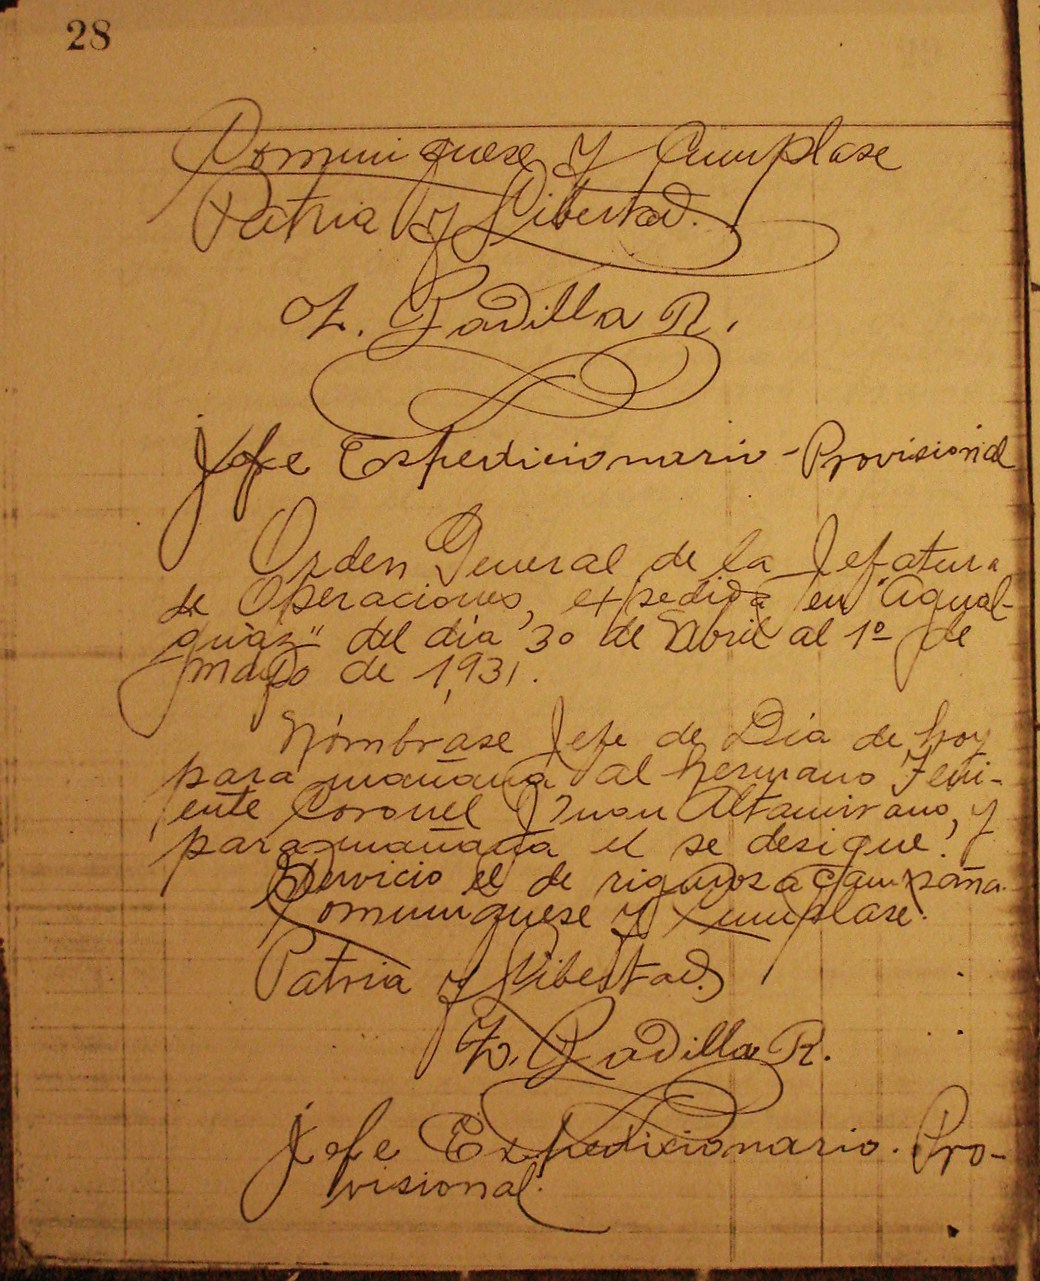 28
Comuniquese y Cumplase
Patria y Libertad.
Z. Padilla R.
Jefe Expedicionario-Provisional
Orden General de la Jefatura
de Operaciones, expedida en "Agual-
guàz" del día 30 de Abril al 1º de
mayo de 1,931.
Nómbrase Jefe de Día de hoy
para mañana al hermano Teni-
ente Coronel Juan Altamirano, y
para mañana el se desigue.
Servicio el de rigurosa campaña.
Comuniquese y Cumplase.
Patria y Libertad.
Z. Padilla R.
Jefe Expedicionario. Pro-
visional.